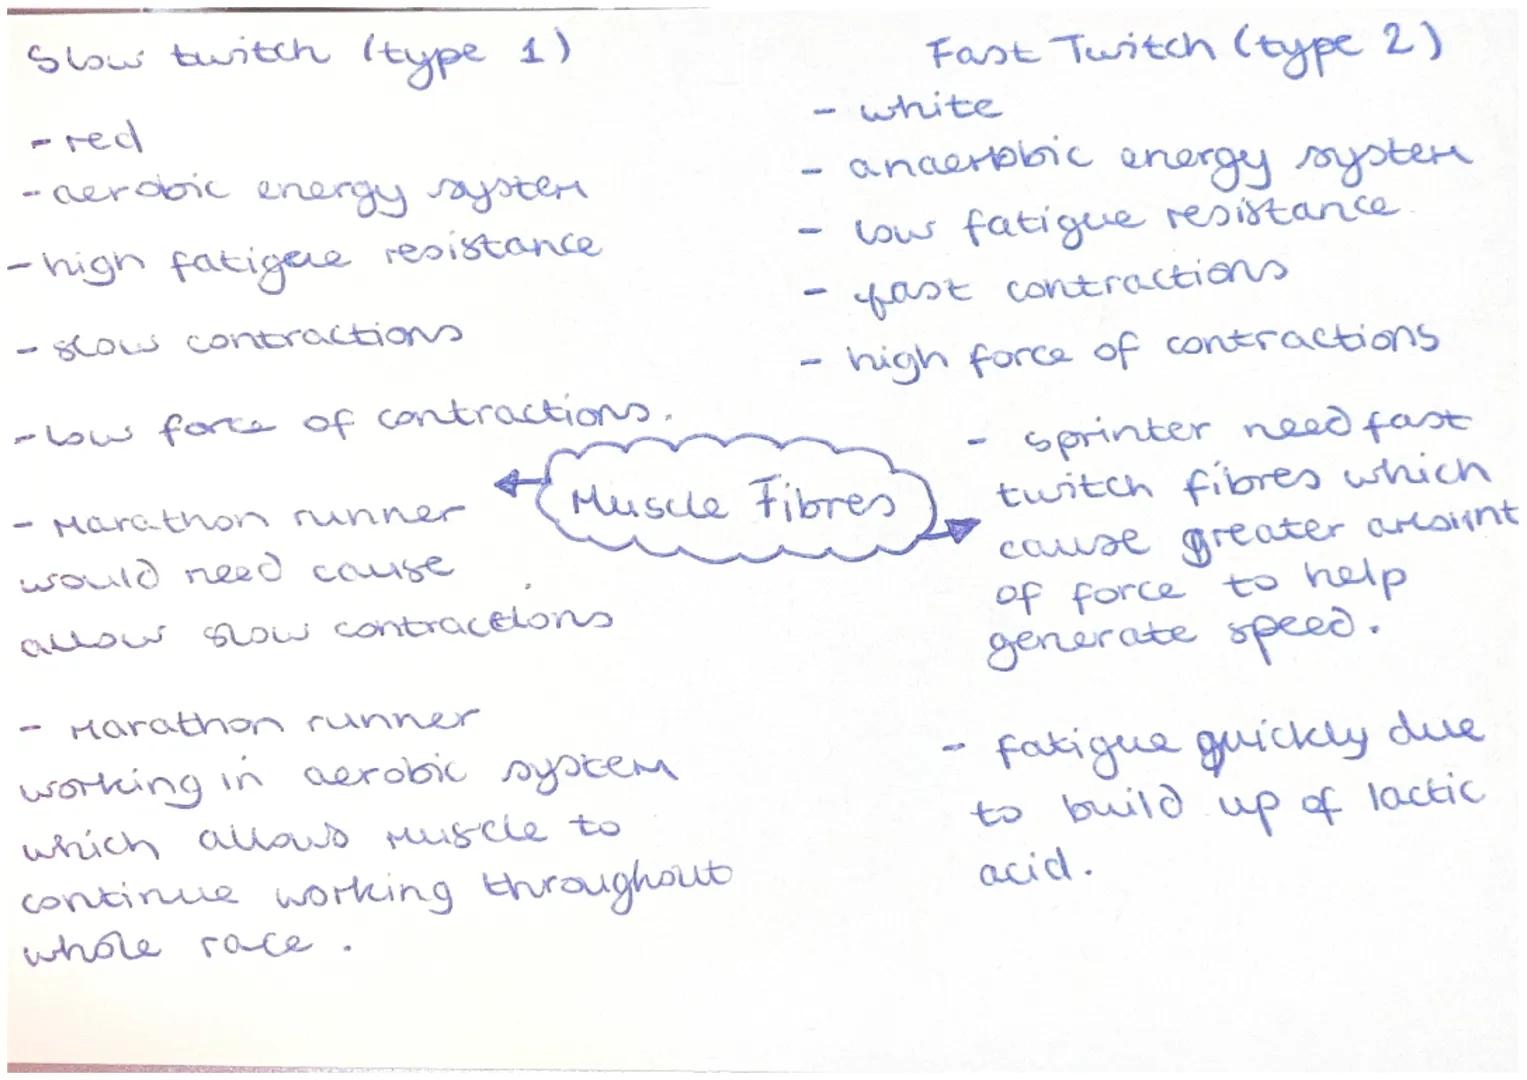 Slow twitch (type 1)
- red
- aerobic energy system
- high fatigue resistance
- slow contractions
- low force of contractions.
- Marathon runner
would need cause
allow slow contractions
- Marathon runner
working in aerobic system
which allows muscle to
continue working throughout
whole race.
Muscle Fibres
Fast Twitch (type 2)
- white
- anaerobic energy system
- low fatigue resistance
- fast contractions
- high force of contractions
- sprinter need fast
twitch fibres which
cause greater amount
of force to help
generate speed.
- fatigue quickly due
to build up of lactic
acid.